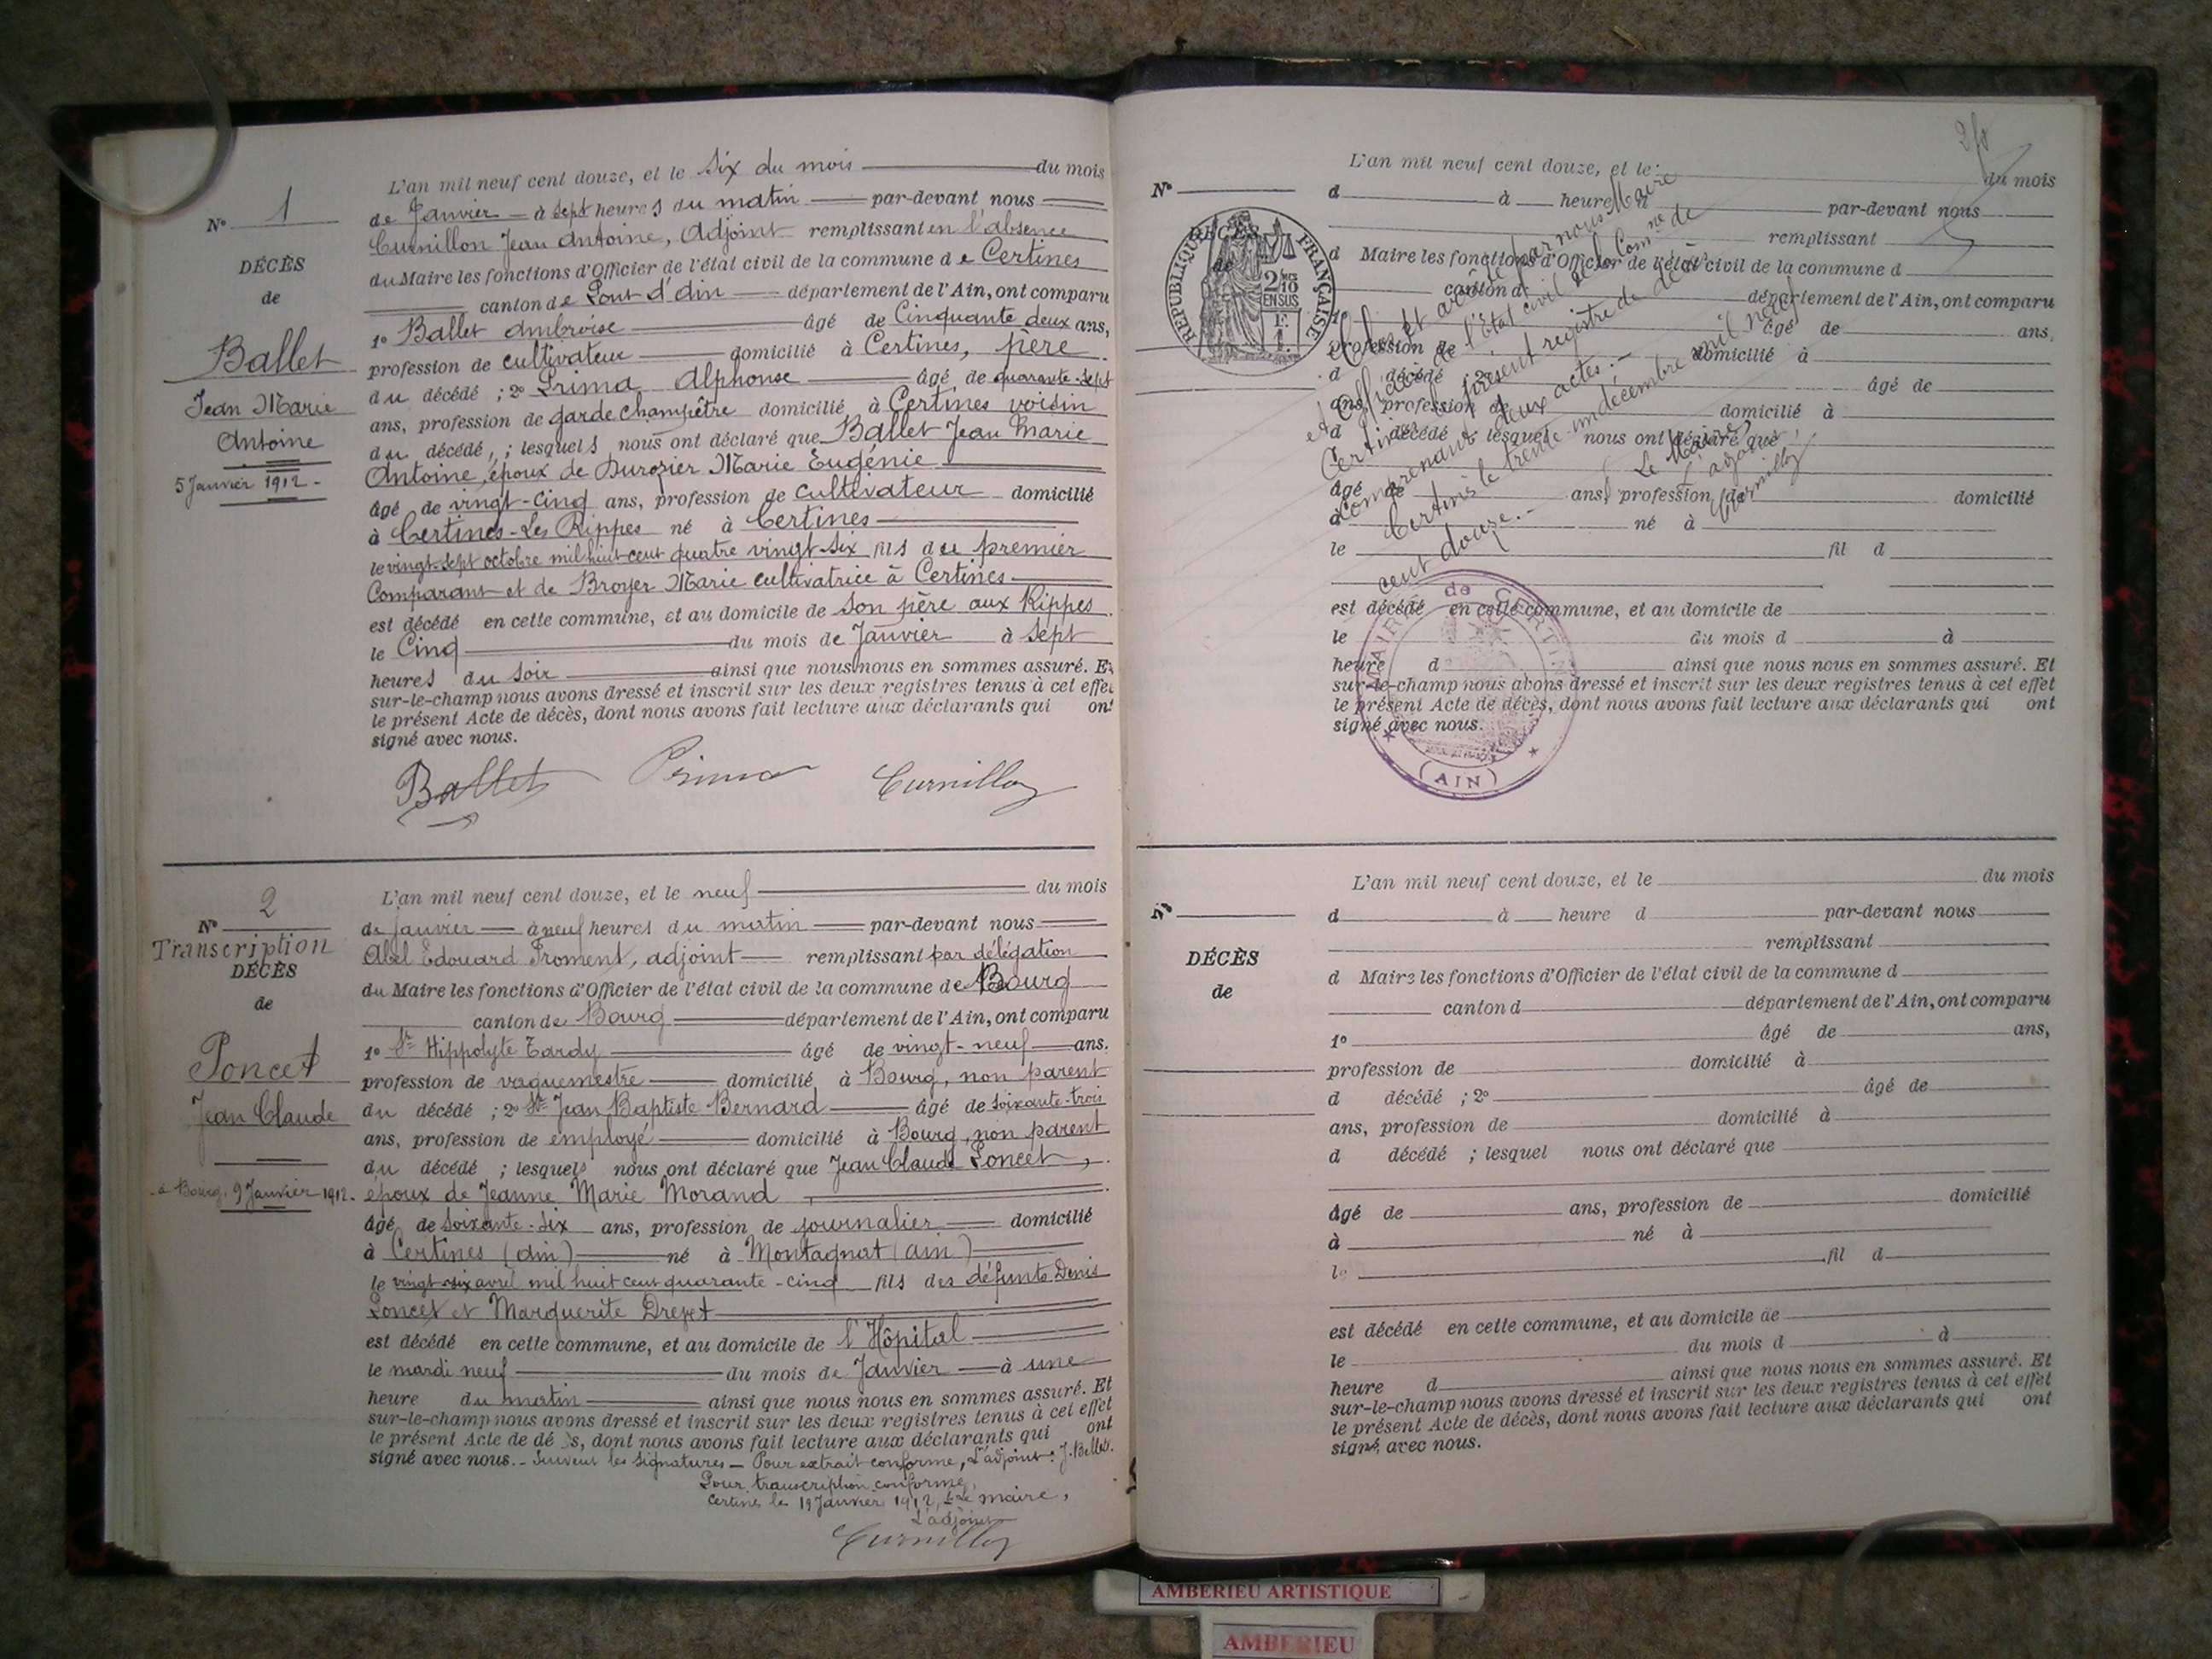 L'an mil neuf cent douze, et le six du mois du mois
N° 1
de Janvier à sept heures du matin par-devant nous
Curnillon Jean Antoine, Adjoint remplissant en l'absence
du Maire les fonctions d'Officier de l'état civil de la commune de Certines
canton de Pont d'Ain département de l'Ain, ont comparu
1° Ballet Ambroise âgé de Cinquante deux ans,
profession de cultivateur domicilié à Certines, père
du décédé ; 2° Prima Alphonse âgé de quarante-sept
ans, profession de garde champêtre domicilié à Certines voisin
du décédé, ; lesquels nous ont déclaré que Ballet Jean Marie
Antoine, époux de Durozier Marie Eugénie
âgé de vingt-cinq ans, profession de cultivateur domicilié
à Certines-Les Rippes né à Certines
le vingt-sept octobre mil huit cent quatre vingt-six fils du premier
Comparant et de Broyer Marie cultivatrice à Certines
est décédé en cette commune, et au domicile de son père aux Rippes
le Cinq du mois de Janvier à sept
heures du soir ainsi que nous nous en sommes assuré. Et
sur-le-champ nous avons dressé et inscrit sur les deux registres tenus à cet effet
le présent Acte de décès, dont nous avons fait lecture aux déclarants qui ont
signé avec nous.
DÉCÈS
de
Ballet
Jean Marie
Antoine
5 Janvier 1912 -
Ballet Prima Curnillon
N° 2
Transcription
DÉCÈS
de
Poncet
Jean Claude
à Bourg, 9 Janvier 1912.
L'an mil neuf cent douze, et le neuf du mois
de janvier à neuf heures du matin par-devant nous
Abel Edouard Froment, adjoint remplissant par délégation
du Maire les fonctions d'Officier de l'état civil de la commune de Bourg
canton de Bourg département de l'Ain, ont comparu
1° Sr Hippolyte Tardy âgé de vingt-neuf ans.
profession de vaguemestre domicilié à Bourg, non parent
du décédé ; 2° Sr Jean Baptiste Bernard âgé de soixante-trois
ans, profession de employé domicilié à Bourg, non parent
du décédé ; lesquels nous ont déclaré que Jean Claude Poncet,
époux de Jeanne Marie Morand
âgé de soixante-six ans, profession de journalier domicilié
à Certines (ain) né à Montagnat (ain)
le vingt-six avril mil huit cent quarante-cinq fils des défunts Denis
Poncet et Marguerite Drevet
est décédé en cette commune, et au domicile de l'Hôpital
le mardi neuf du mois de Janvier à une
heure du matin ainsi que nous nous en sommes assuré. Et
sur-le-champ nous avons dressé et inscrit sur les deux registres tenus à cet effet
le présent Acte de dé s, dont nous avons fait lecture aux déclarants qui ont
signé avec nous. - Suivent les signatures - Pour extrait conforme, L'adjoint: J.
Pour transcription conforme,
Certines le 19 Janvier 1912, Le maire,
L'adjoint
Curnillon
L'an mil neuf cent douze, et le du mois
N° d à heure d par-devant nous
remplissant
d Maire les fonctions d'Officier de l'état civil de la commune d
canton d département de l'Ain, ont comparu
1° âgé de ans,
profession de domicilié à
d décédé ; 2° âgé de
ans, profession de domicilié à
d décédé ; lesquel nous ont déclaré que
âgé de ans, profession de domicilié
à né à
le fil d
est décédé en cette commune, et au domicile de
le du mois d à
heure d ainsi que nous nous en sommes assuré. Et
sur-le-champ nous avons dressé et inscrit sur les deux registres tenus à cet effet
le présent Acte de décès, dont nous avons fait lecture aux déclarants qui ont
signé avec nous.
RÉPUBLIQUE FRANÇAISE
2/10 EN SUS
Clos et arrêté par nous Maire
et Officier de l'Etat civil de la Comne de
Certines le présent registre de décès
comprenant deux actes.-
Certines le trente-un décembre mil neuf
cent douze.-
Le Maire,
L'adjoint
Curnillon
MAIRIE de CERTINES
(AIN)
L'an mil neuf cent douze, et le du mois
N° d à heure d par-devant nous
remplissant
DÉCÈS
de
d Maire les fonctions d'Officier de l'état civil de la commune d
canton d département de l'Ain, ont comparu
1° âgé de ans,
profession de domicilié à
d décédé ; 2° âgé de
ans, profession de domicilié à
d décédé ; lesquel nous ont déclaré que
âgé de ans, profession de domicilié
à né à
le fil d
est décédé en cette commune, et au domicile de
le du mois d à
heure d ainsi que nous nous en sommes assuré. Et
sur-le-champ nous avons dressé et inscrit sur les deux registres tenus à cet effet
le présent Acte de décès, dont nous avons fait lecture aux déclarants qui ont
signé avec nous.
AMBERIEU ARTISTIQUE
AMBERIEU